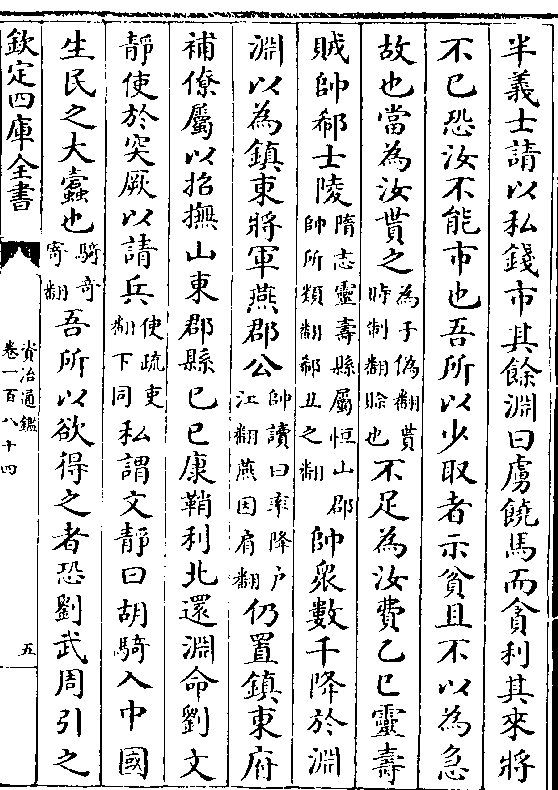 半義士請以私錢市其餘淵曰虜饒馬而貪利其來將
不已恐汝不能市也吾所以少取者示貧且不以為急
故也當為汝貰之為于偽翻貰時制翻賒也不足為汝費乙巳靈壽
賊帥郗士陵隋志靈壽縣屬恒山郡帥所類翻郗丑之翻帥衆數千降於淵
淵以為鎮東將軍燕郡公帥讀曰率降戶江翻燕因肩翻仍置鎮東府
補僚屬以招撫山東郡縣己巳康鞘利北還淵命劉文
靜使於突厥以請兵使疏吏翻下同私謂文靜曰胡騎入中國
生民之大蠹也騎奇寄翻吾所以欲得之者恐劉武周引之
欽定四庫全書
資治通鑑
卷一百八十四
五